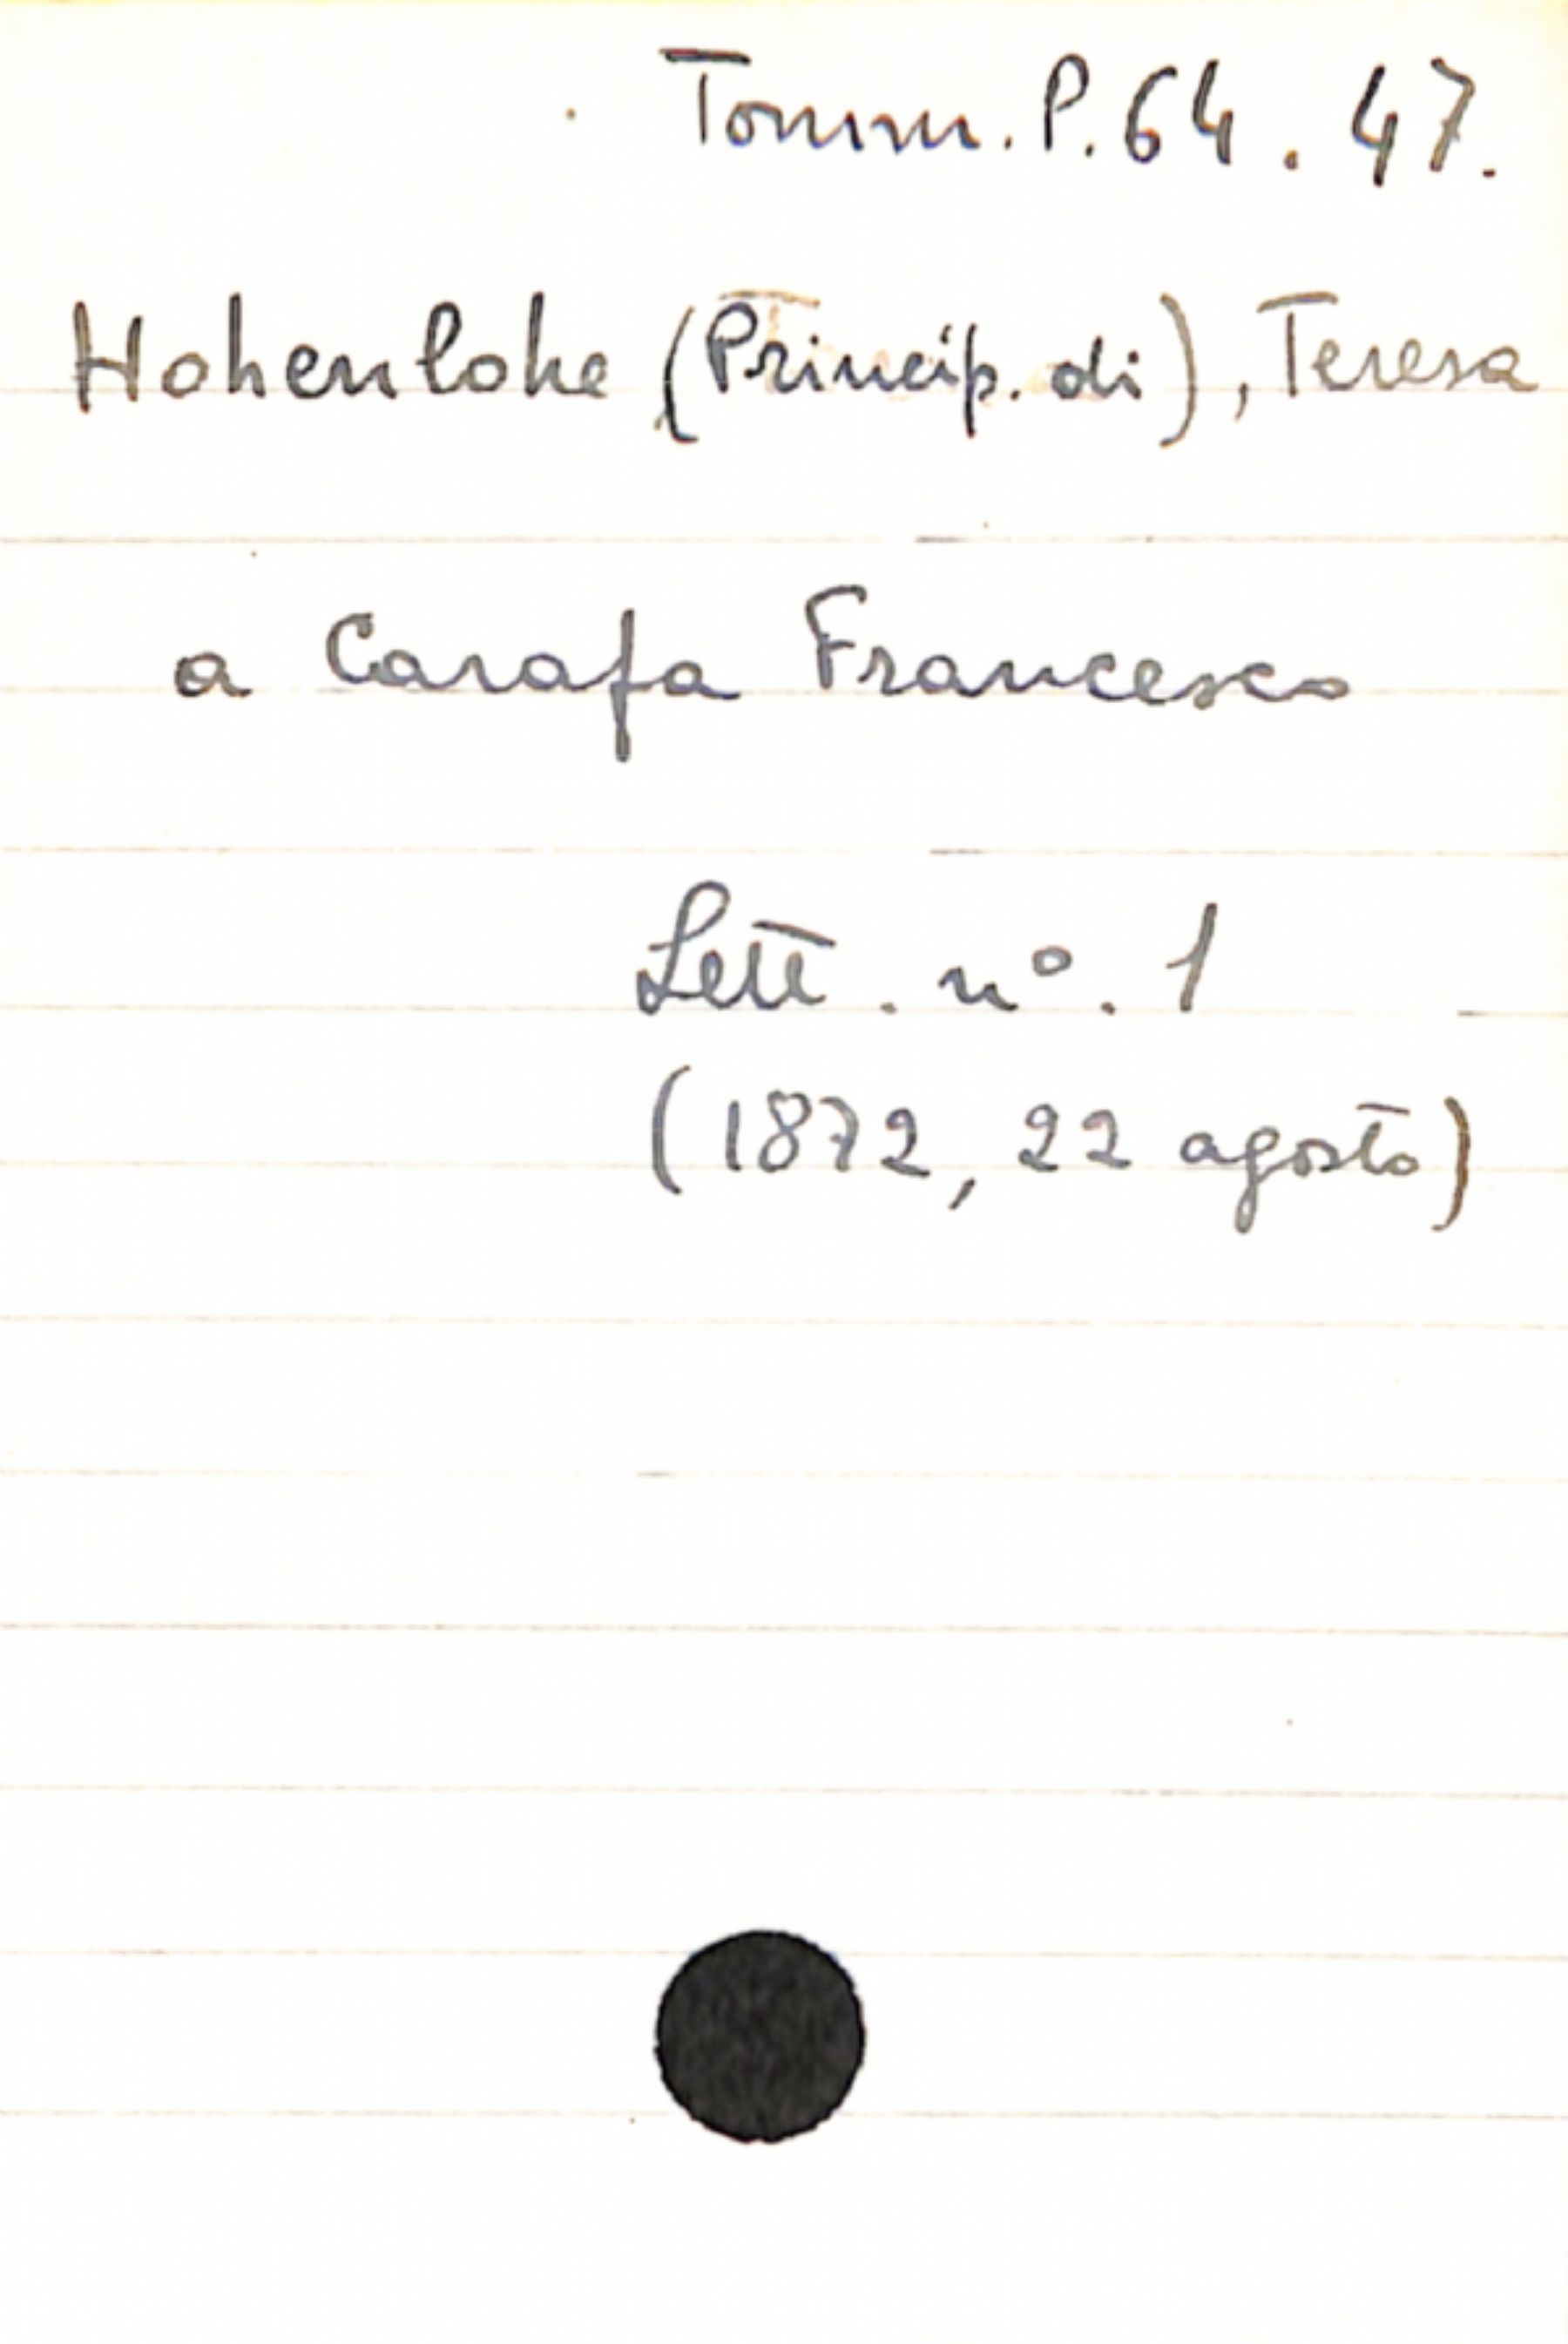 Tomm. P. 64. 47.
Hohenlohe (Princip. di), Teresa
a Carafa Francesco
Lett. n°. 1
(1872, 22 agosto)